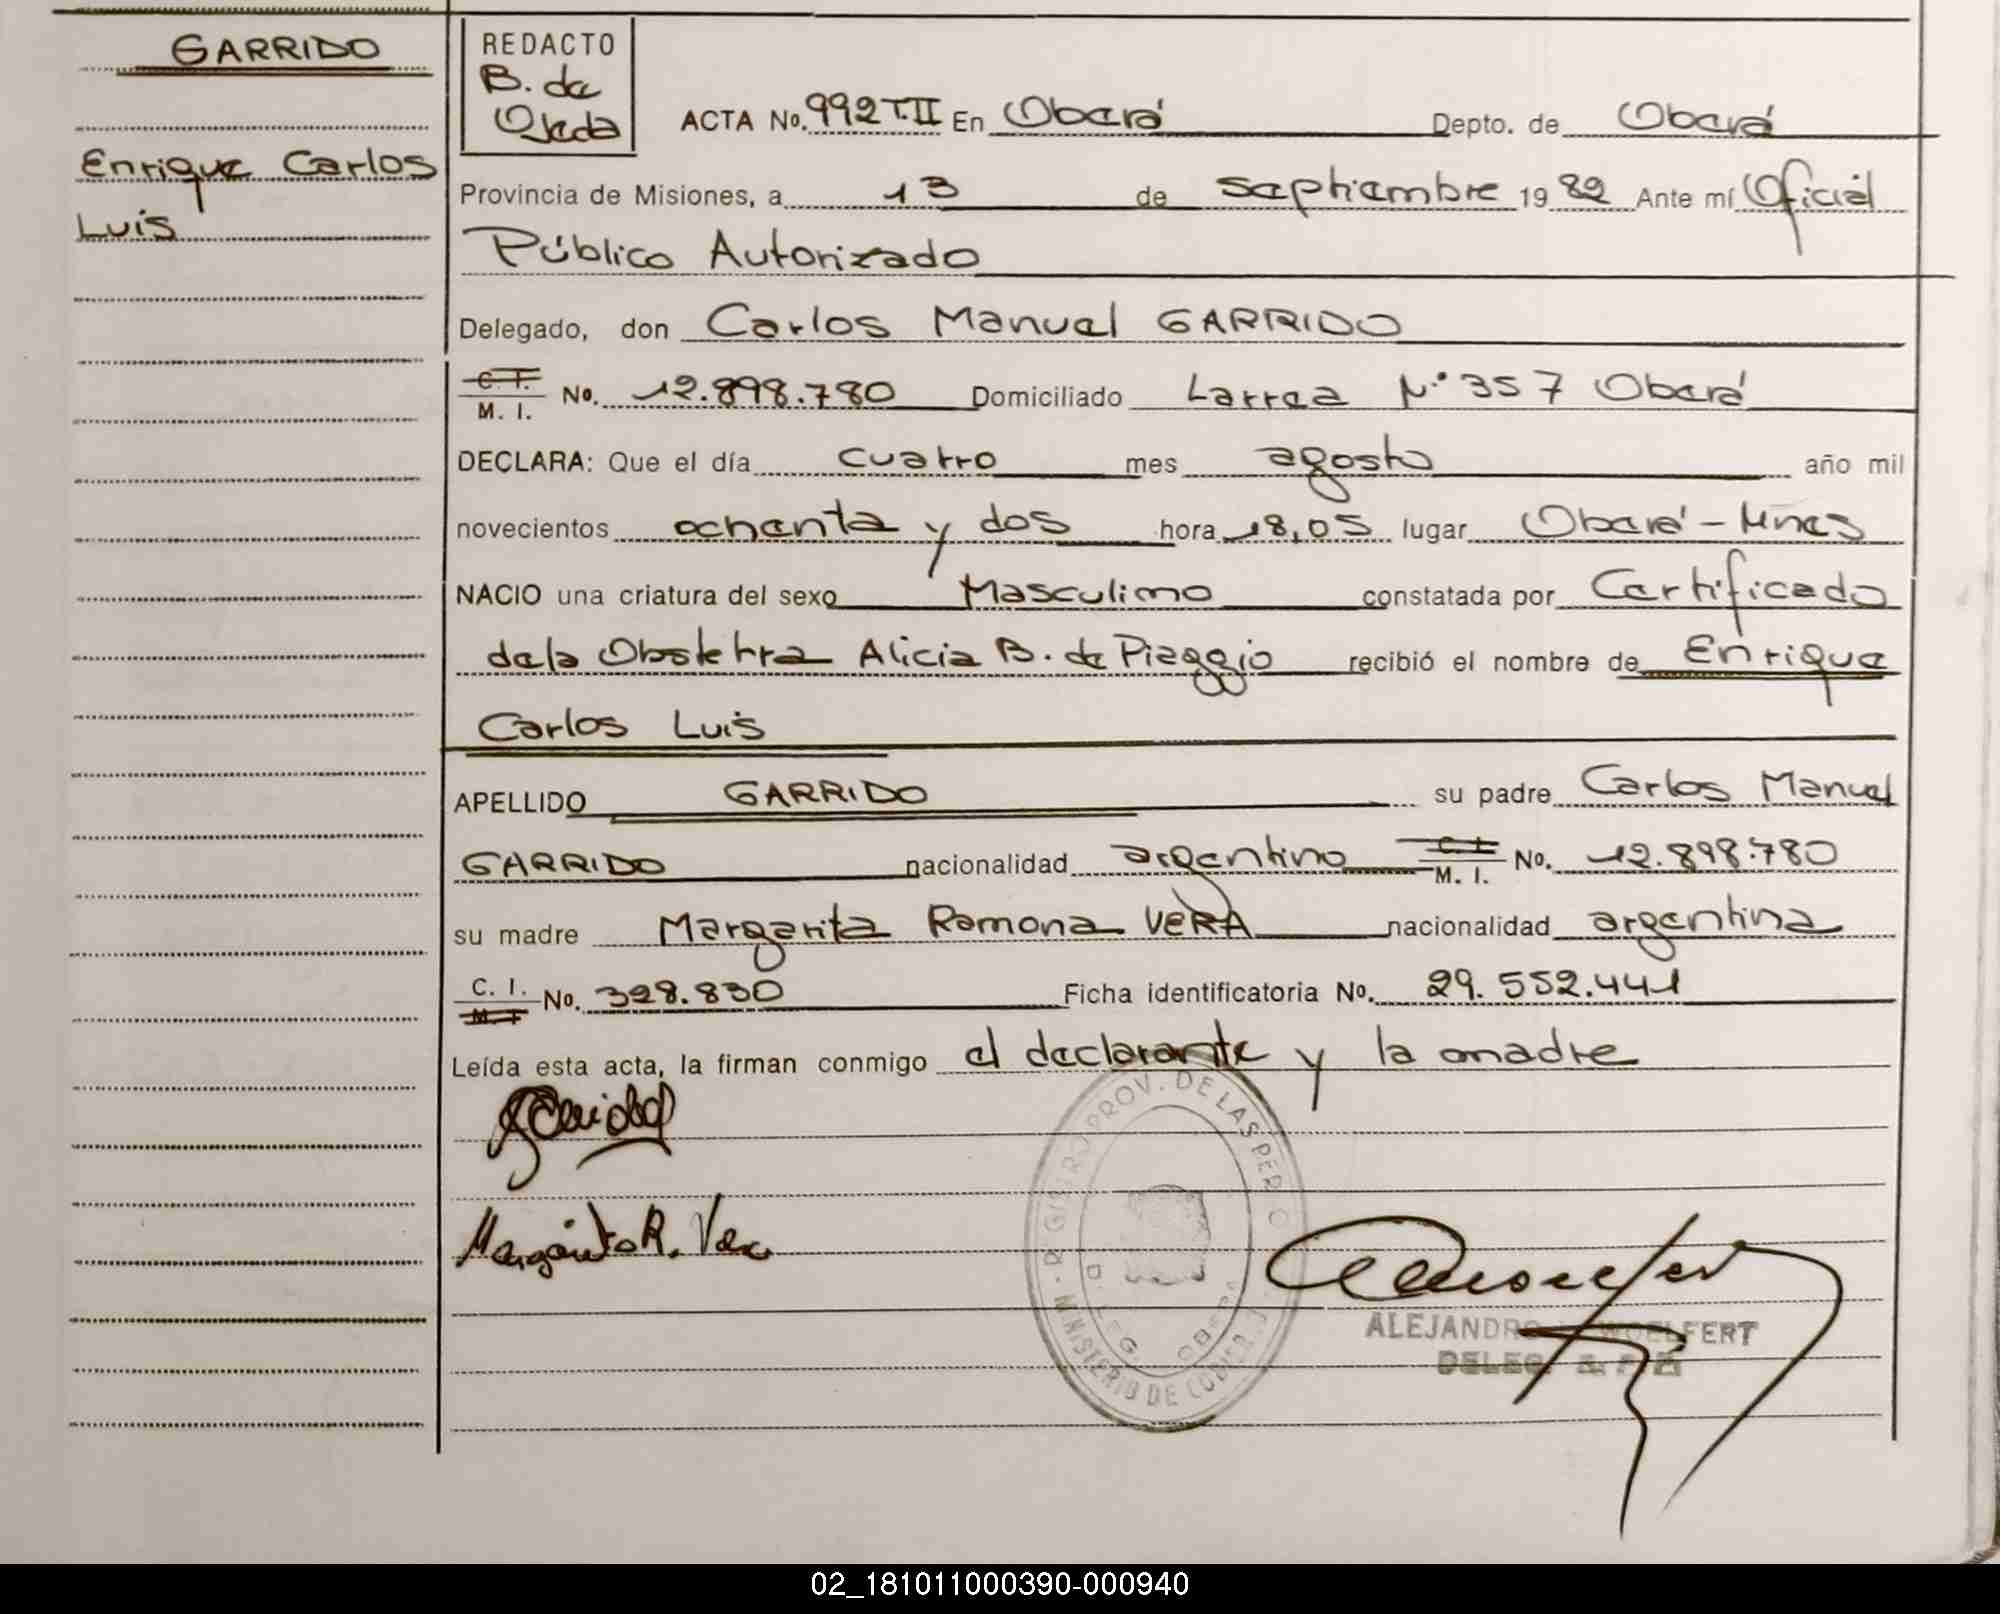 GARRIDO
Enrique Carlos
Luis
REDACTO
B. de
Ojeda
ACTA No. 992 T.II En Oberá Depto. de Oberá
Provincia de Misiones, a 13 de septiembre 19 82 Ante mí Oficial
Público Autorizado
Delegado, don Carlos Manuel GARRIDO
C. I.
M. I. No. 12.898.780 Domiciliado Larrea N° 357 Oberá
DECLARA: Que el día cuatro mes agosto año mil
novecientos ochenta y dos hora 18,05 lugar Oberá - Mnes
NACIO una criatura del sexo Masculino constatada por Certificado
de la Obstetra Alicia B. de Piaggio recibió el nombre de Enrique
Carlos Luis
APELLIDO GARRIDO su padre Carlos Manuel
GARRIDO nacionalidad argentino C. I. M. I. No. 12.898.780
su madre Margarita Ramona VERA nacionalidad argentina
C. I.
M. I. No. 328.830 Ficha identificatoria No. 29.552.441
Leída esta acta, la firman conmigo el declarante y la madre
Margarita R. Vera
REGISTRO PROV. DE LAS PER
MINISTERIO DE GOBIER
DELEG. OBERA
ALEJANDRO WOELFERT
DELEG
02_181011000390-000940